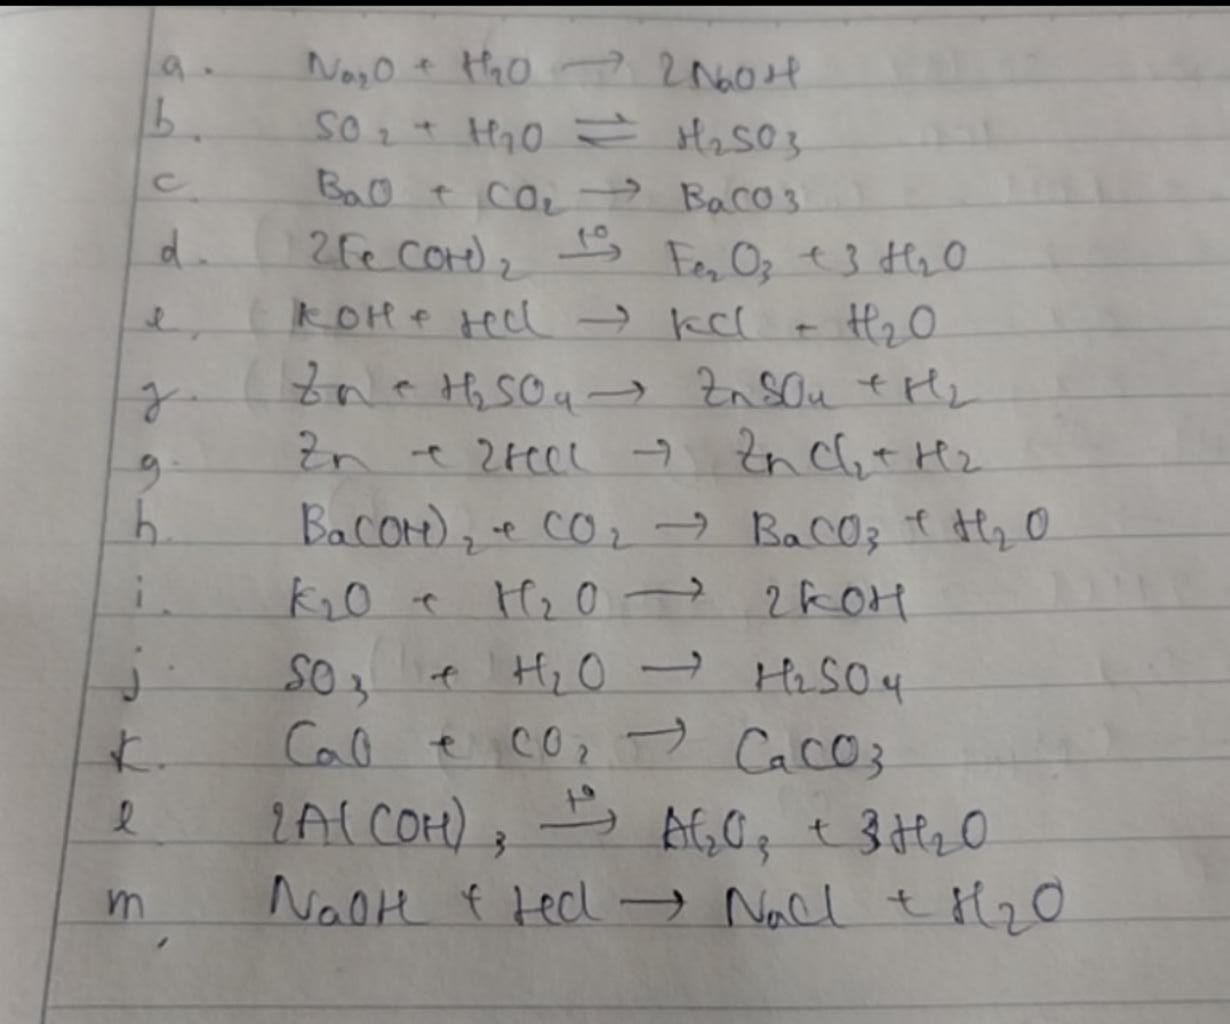 a. Na₂O + H₂O → 2NaOH
b. SO₂ + H₂O ⇌ H₂SO₃
c. BaO + CO₂ → BaCO₃
d. 2Fe(OH)₂ →(t°) Fe₂O₃ + 3H₂O
e. KOH + HCl → KCl + H₂O
f. Zn + H₂SO₄ → ZnSO₄ + H₂
g. Zn + 2HCl → ZnCl₂ + H₂
h. Ba(OH)₂ + CO₂ → BaCO₃ + H₂O
i. K₂O + H₂O → 2KOH
j. SO₃ + H₂O → H₂SO₄
k. CaO + CO₂ → CaCO₃
l 2Al(OH)₃ →(t°) Al₂O₃ + 3H₂O
m, NaOH + HCl → NaCl + H₂O